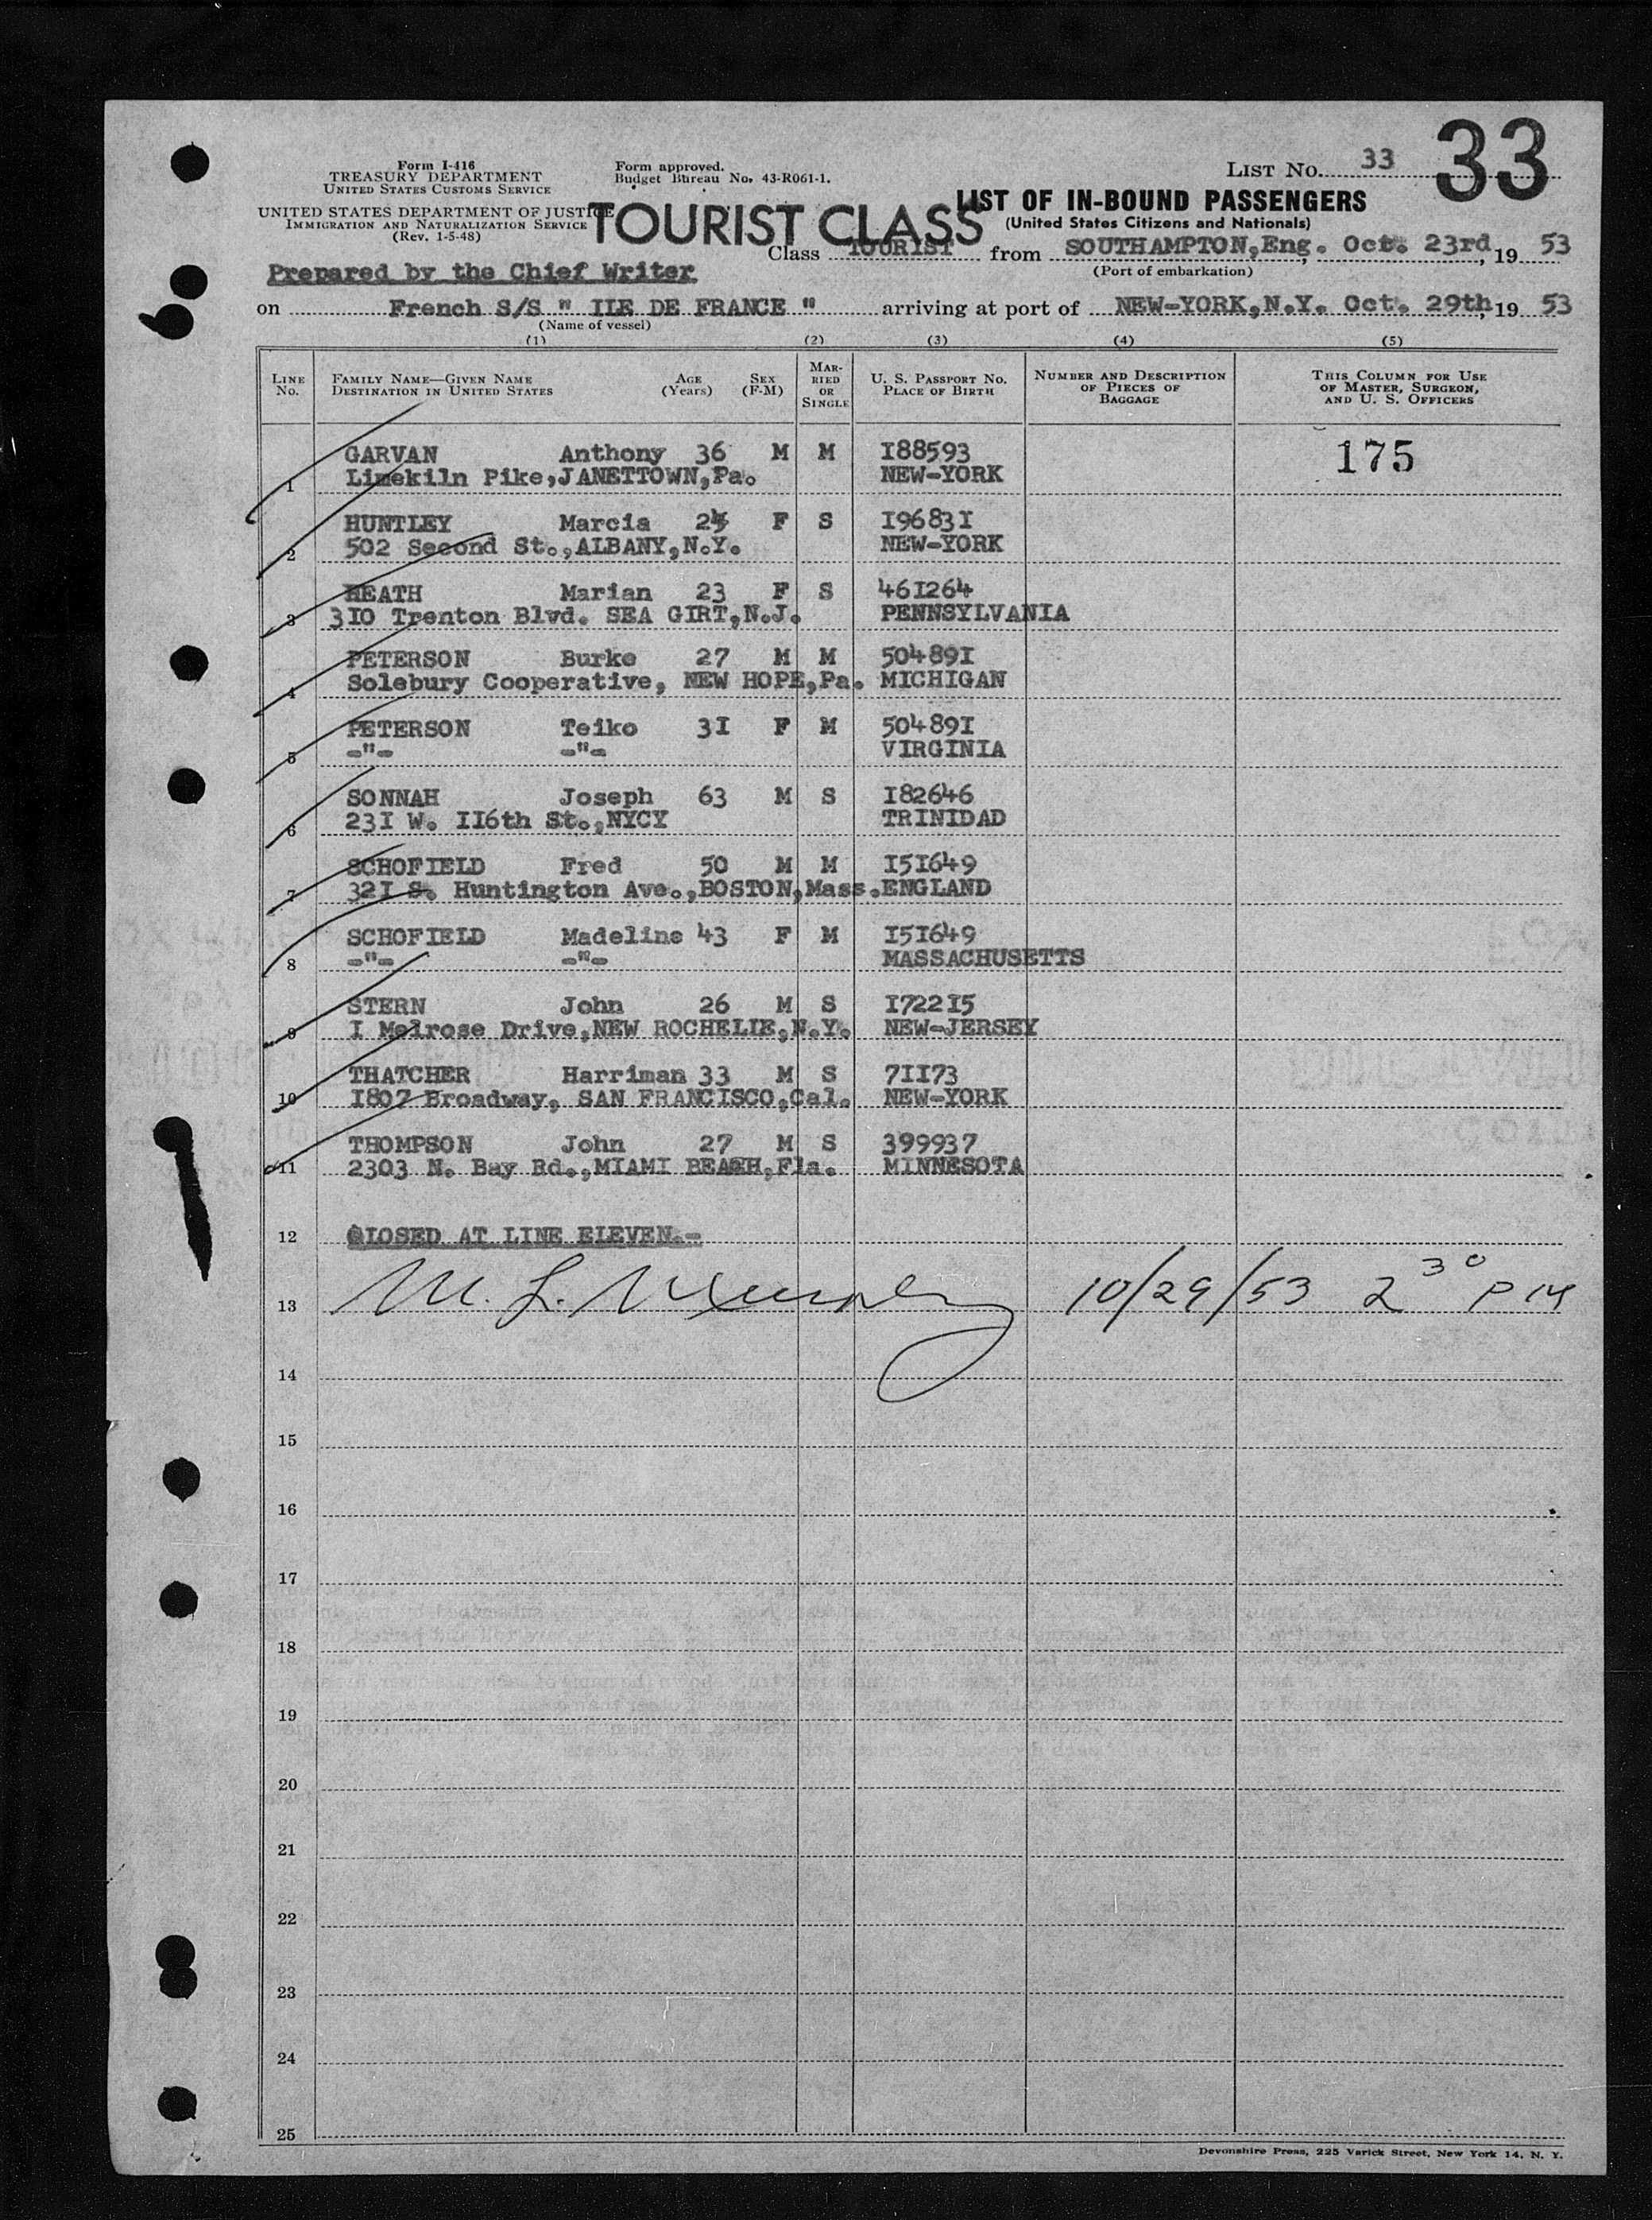 33
Form I-416
TREASURY DEPARTMENT
UNITED STATES CUSTOMS SERVICE
Form approved.
Budget Bureau No. 43-R061-1.
LIST NO. 33
UNITED STATES DEPARTMENT OF JUSTICE
IMMIGRATION AND NATURALIZATION SERVICE
(Rev. 1-5-48)
TOURIST CLASS
LIST OF IN-BOUND PASSENGERS
(United States Citizens and Nationals)
Class TOURIST from SOUTHAMPTON,Eng. Oct. 23rd, 19 53
(Port of embarkation)
Prepared by the Chief Writer
on French S/S " ILE DE FRANCE " arriving at port of NEW-YORK,N.Y. Oct. 29th, 19 53
(Name of vessel)
(1) (2) (3) (4) (5)
LINE NO.
FAMILY NAME—GIVEN NAME
DESTINATION IN UNITED STATES
AGE (Years)
SEX (F-M)
MARRIED OR SINGLE
U. S. PASSPORT NO.
PLACE OF BIRTH
NUMBER AND DESCRIPTION OF PIECES OF BAGGAGE
THIS COLUMN FOR USE OF MASTER, SURGEON, AND U. S. OFFICERS
GARVAN Anthony 36 M M I88593 175
1 Limekiln Pike,JANETTOWN,Pa. NEW-YORK
HUNTLEY Marcia F S I9683I
2 502 Second St.,ALBANY,N.Y. NEW-YORK
HEATH Marian 23 F S 46I264
3 3I0 Trenton Blvd. SEA GIRT,N.J. PENNSYLVANIA
PETERSON Burke 27 M M 50489I
4 Solebury Cooperative, NEW HOPE,Pa. MICHIGAN
PETERSON Teiko 3I F M 50489I
5 -"- -"- VIRGINIA
SONNAH Joseph 63 M S I82646
6 23I W. II6th St.,NYCY TRINIDAD
SCHOFIELD Fred 50 M M I5I649
7 32I S. Huntington Ave.,BOSTON,Mass. ENGLAND
SCHOFIELD Madeline 43 F M I5I649
8 -"- -"- MASSACHUSETTS
STERN John 26 M S I722I5
9 I Melrose Drive,NEW ROCHELLE,N.Y. NEW-JERSEY
THATCHER Harriman 33 M S 7II73
10 I807 Broadway, SAN FRANCISCO,Cal. NEW-YORK
THOMPSON John 27 M S 399937
11 2303 N. Bay Rd.,MIAMI BEACH,Fla. MINNESOTA
12 CLOSED AT LINE ELEVEN.-
13 M. L. 10/29/53 2 30 PM
14
15
16
17
18
19
20
21
22
23
24
25
Devonshire Press, 225 Varick Street, New York 14, N. Y.